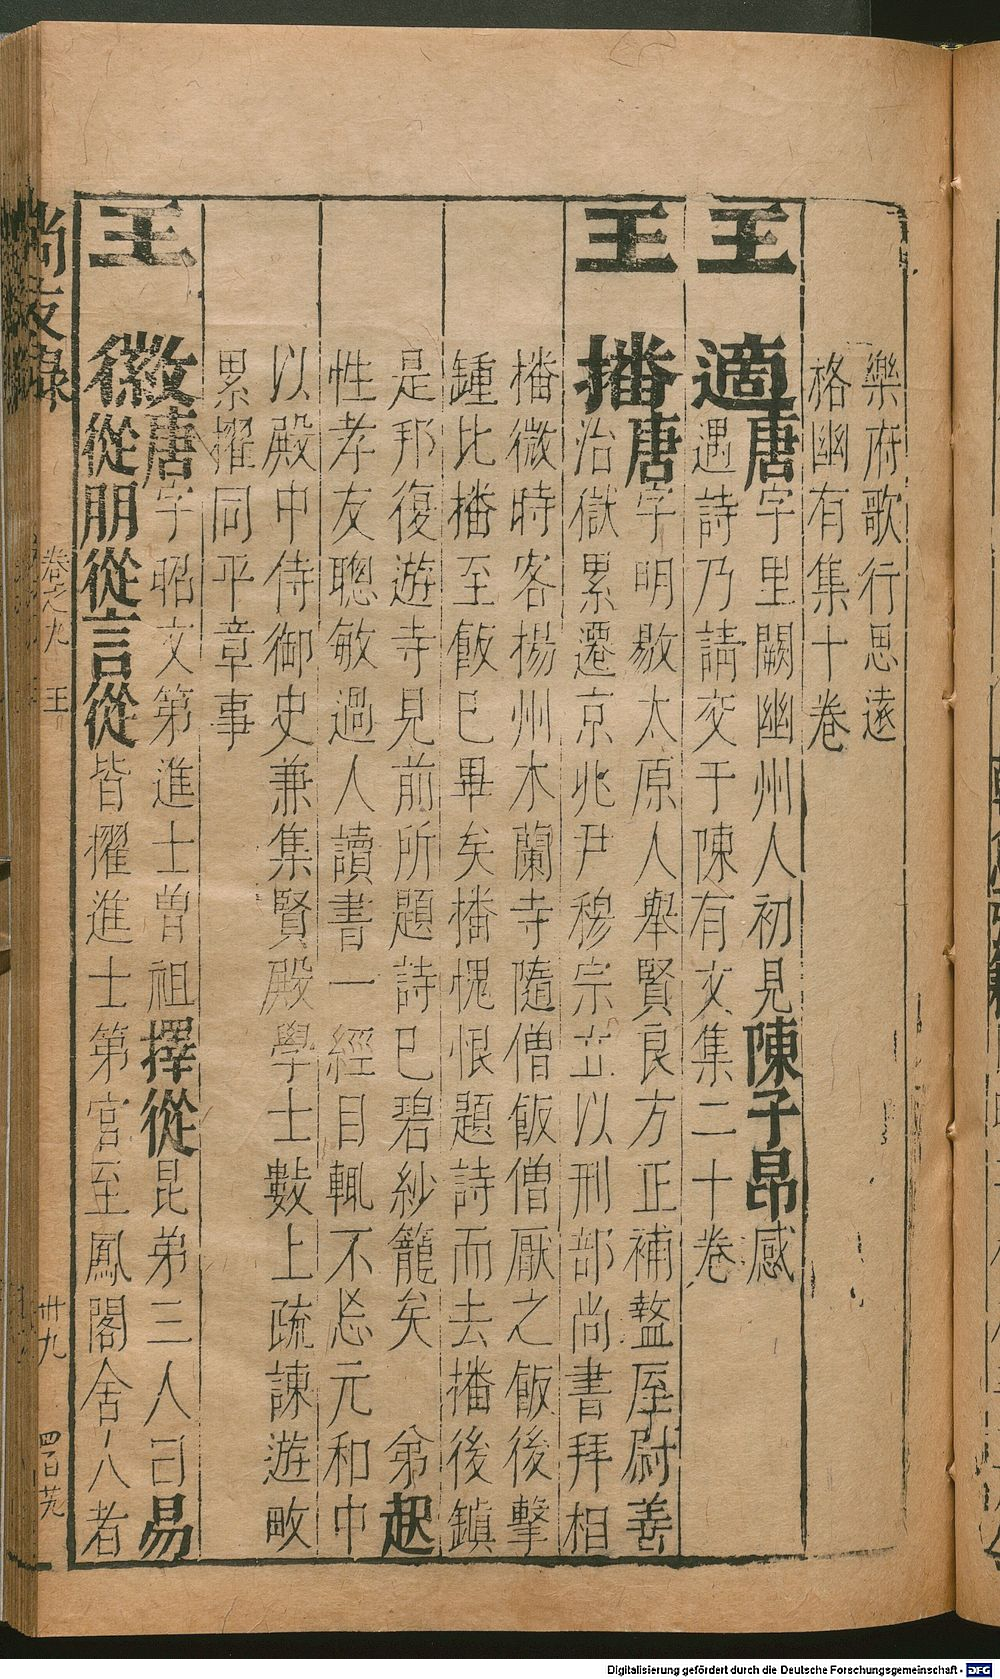 樂府歌行思遠
格幽有集十卷
王適唐字里闕幽州人初見陳子昂感
遇詩乃請交于陳有文集二十卷
王播唐字明敭太原人舉賢良方正補盩厔尉善
治獄累遷京兆尹穆宗立以刑部尚書拜相
播微時客揚州木蘭寺隨僧飯僧厭之飯後擊
鍾比播至飯巳畢矣播愧恨題詩而去播後鎮
是邦復遊寺見前所題詩巳碧紗籠矣 弟起
性孝友聰敏過人讀書一經目輒不忘元和中
以殿中侍御史兼集賢殿學士數上疏諫遊畋
累擢同平章事
王徽唐字昭文第進士曾祖擇從昆弟三人曰易
從朋從言從皆擢進士第官至鳳閣舍人者
尚友錄 卷之九 王 卅九
Digitalisierung gefördert durch die Deutsche Forschungsgemeinschaft - DFG